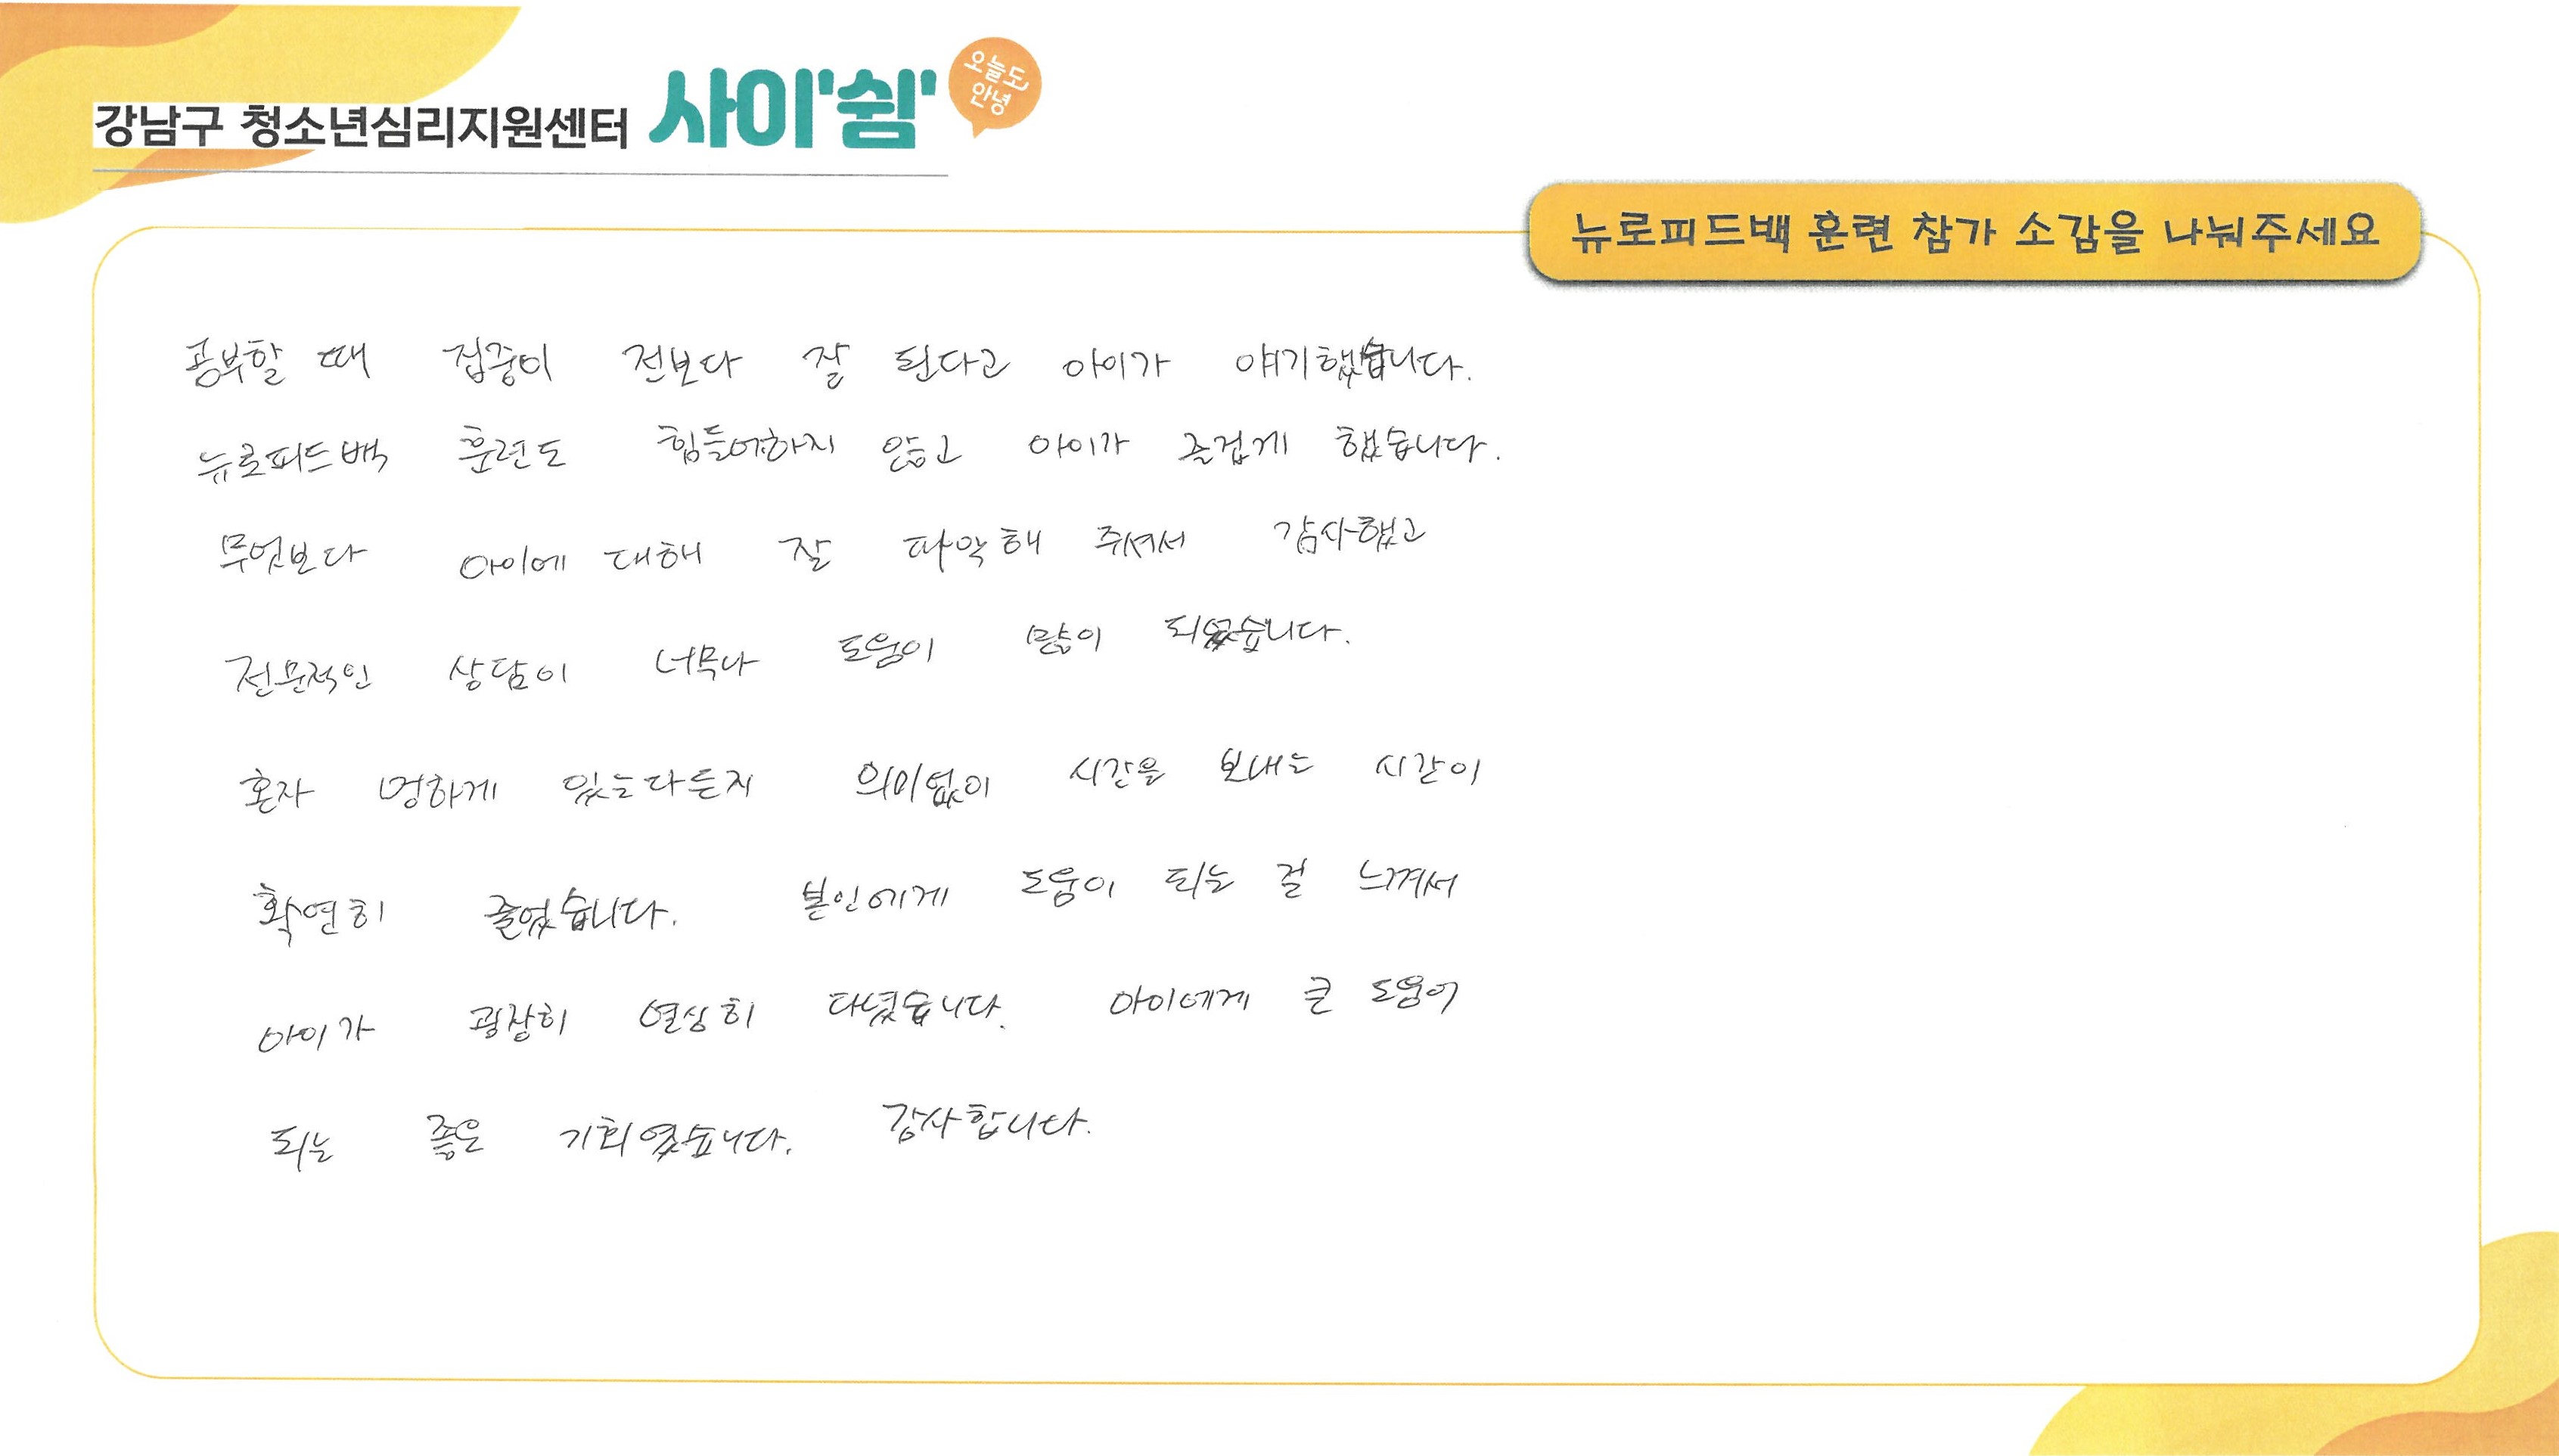 강남구 청소년심리지원센터 사이'쉼' 오늘도 안녕
뉴로피드백 훈련 참가 소감을 나눠주세요
공부할 때 집중이 전보다 잘 된다고 아이가 얘기했습니다.
뉴로피드백 훈련도 힘들어하지 않고 아이가 즐겁게 했습니다.
무엇보다 아이에 대해 잘 파악해 주셔서 감사했고
전문적인 상담이 너무나 도움이 많이 되었습니다.
혼자 멍하게 있는다든지 의미없이 시간을 보내는 시간이
확연히 줄었습니다. 본인에게 도움이 되는 걸 느껴서
아이가 굉장히 열심히 다녔습니다. 아이에게 큰 도움이
되는 좋은 기회였습니다. 감사합니다.